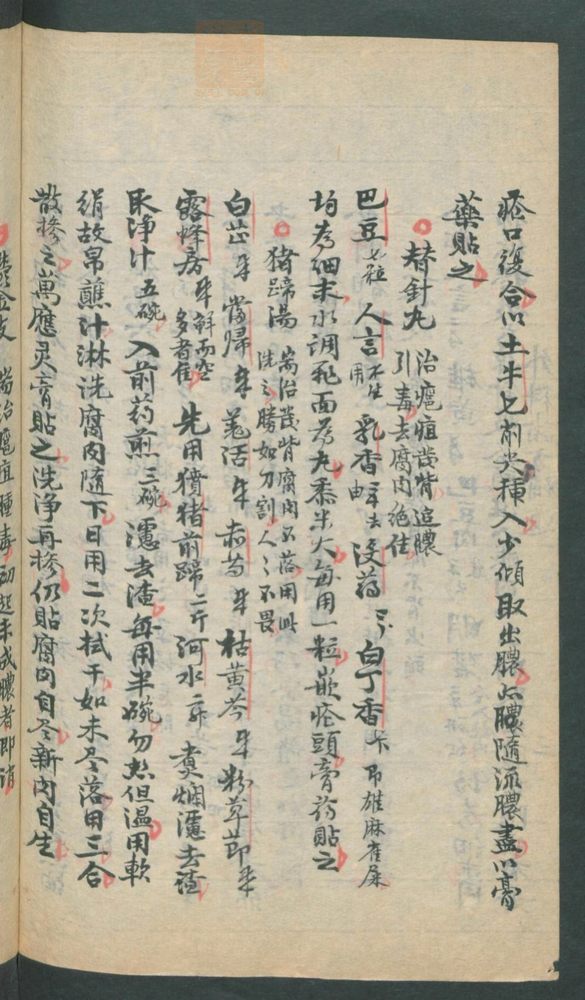 瘡口復合以土牛七削尖揷入少傾取出膿如膿隨流膿盡以膏
藥貼之
替針丸 治癰疽發背追膿
引毒去腐肉絶佳
巴豆七粒 人言不生用 乳香 去 沒葯三卜 白丁香 卽雄麻雀屎
均爲細末水調飛面爲丸黍米大每用一粒嵌瘡頭膏葯貼之
猪蹄湯 耑治發背腐肉不落用此
洗之勝如刀割人人不畏
白芷 當歸 羌活 赤芍 枯黃芩 粉草節
露蜂房 多者佳 先用獖猪前蹄一斤河水 煑爛濾去渣
取淨汁五碗入前葯煎三碗濾去渣每用半碗勿熱但溫用軟
絹故帛蘸汁淋洗腐肉隨下日用二次拭干如未尽落用三合
散摻之萬應灵膏貼之洗淨再摻仍貼腐肉自尽新肉自生
耑治癰疽腫毒初起未成膿者卽消